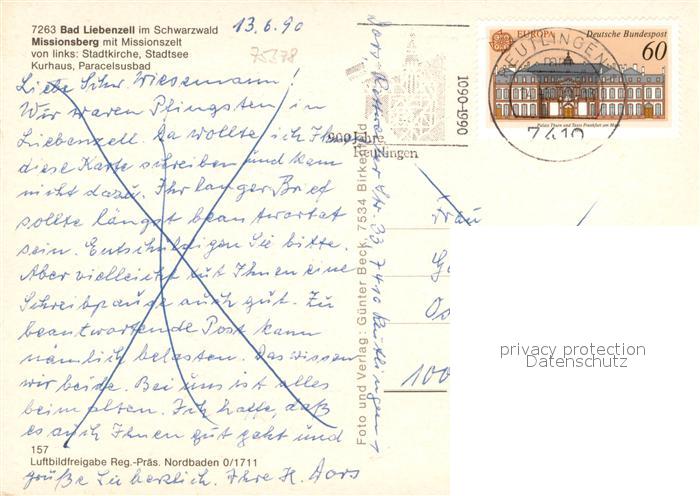 7263 Bad Liebenzell im Schwarzwald
Missionsberg mit Missionszelt
von links: Stadtkirche, Stadtsee
Kurhaus, Paracelsusbad
13.6.90
75378
Liebe Schw. Wiesemann!
Wir waren Pfingsten in
Liebenzell. Da wollte ich Ihnen
diese Karte schreiben und kam
nicht dazu. Ihr langer Brief
sollte längst beantwortet
sein. Entschuldigen Sie bitte.
Aber vielleicht tut Ihnen eine
Schreibpause auch gut. Zu
beantwortende Post kann
nämlich belasten. Das wissen
wir beide. Bei uns ist alles
beim alten. Ich hoffe, daß
es auch Ihnen gut geht und
grüße Sie herzlich. Ihre H. Dors
157
Luftbildfreigabe Reg.-Präs. Nordbaden 0/1711
Foto und Verlag: Günter Beck, 7534 Birkenfeld
Str. 33 7410 Reutlingen 1
900 Jahre
Reutlingen
1090-1990
EUROPA
Deutsche Bundespost
60
Palais Thurn und Taxis Frankfurt am Main
REUTLINGEN
7410
Frau
100
privacy protection
Datenschutz